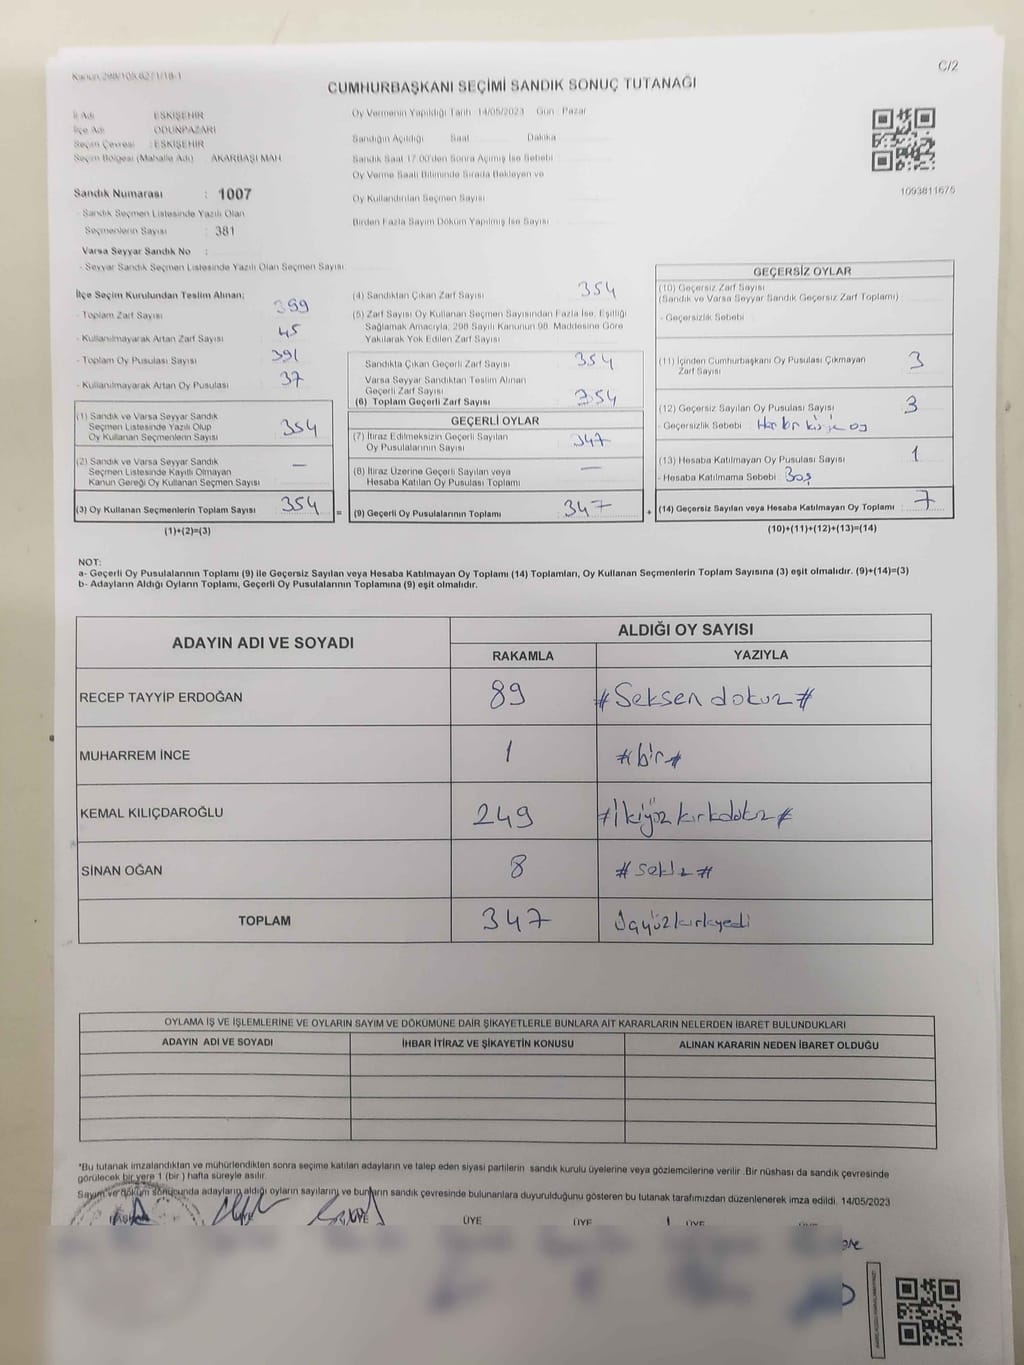 Kanun:298/105.6271/18-1
C/2
CUMHURBAŞKANI SEÇİMİ SANDIK SONUÇ TUTANAĞI
İl Adı ESKİŞEHİR
İlçe Adı ODUNPAZARI
Seçim Çevresi : ESKİŞEHİR
Seçim Bölgesi (Mahalle Adı) . AKARBAŞI MAH
Sandık Numarası : 1007
- Sandık Seçmen Listesinde Yazılı Olan
Seçmenlerin Sayısı : 381
Varsa Seyyar Sandık No :
- Seyyar Sandık Seçmen Listesinde Yazılı Olan Seçmen Sayısı
Oy Vermenin Yapıldığı Tarih 14/05/2023 Gün Pazar
Sandığın Açıldığı Saat Dakika
Sandık Saat 17.00'den Sonra Açılmış İse Sebebi
Oy Verme Saati Bitiminde Sırada Bekleyen ve
Oy Kullandırılan Seçmen Sayısı
Birden Fazla Sayım Döküm Yapılmış İse Sayısı
1093811675
İlçe Seçim Kurulundan Teslim Alınan;
- Toplam Zarf Sayısı 399
- Kullanılmayarak Artan Zarf Sayısı 45
- Toplam Oy Pusulası Sayısı 391
- Kullanılmayarak Artan Oy Pusulası 37
(1) Sandık ve Varsa Seyyar Sandık
Seçmen Listesinde Yazılı Olup
Oy Kullanan Seçmenlerin Sayısı 354
(2) Sandık ve Varsa Seyyar Sandık
Seçmen Listesinde Kayıtlı Olmayan
Kanun Gereği Oy Kullanan Seçmen Sayısı —
(3) Oy Kullanan Seçmenlerin Toplam Sayısı 354 =
(1)+(2)=(3)
(4) Sandıktan Çıkan Zarf Sayısı 354
(5) Zarf Sayısı Oy Kullanan Seçmen Sayısından Fazla İse, Eşitliği
Sağlamak Amacıyla, 298 Sayılı Kanunun 98. Maddesine Göre
Yakılarak Yok Edilen Zarf Sayısı
Sandıkta Çıkan Geçerli Zarf Sayısı 354
Varsa Seyyar Sandıktan Teslim Alınan
Geçerli Zarf Sayısı
(6) Toplam Geçerli Zarf Sayısı 354
GEÇERLİ OYLAR
(7) İtiraz Edilmeksizin Geçerli Sayılan
Oy Pusulası Sayısı 347
(8) İtiraz Üzerine Geçerli Sayılan veya
Hesaba Katılan Oy Pusulası Toplamı —
(9) Geçerli Oy Pusulalarının Toplamı 347 +
GEÇERSİZ OYLAR
(10) Geçersiz Zarf Sayısı
(Sandık ve Varsa Seyyar Sandık Geçersiz Zarf Toplamı)
- Geçersizlik Sebebi :
(11) İçinden Cumhurbaşkanı Oy Pusulası Çıkmayan
Zarf Sayısı 3
(12) Geçersiz Sayılan Oy Pusulası Sayısı 3
- Geçersizlik Sebebi : Her bir kişiye oy
(13) Hesaba Katılmayan Oy Pusulası Sayısı 1
- Hesaba Katılmama Sebebi : Boş
(14) Geçersiz Sayılan veya Hesaba Katılmayan Oy Toplamı 7
(10)+(11)+(12)+(13)=(14)
NOT:
a- Geçerli Oy Pusulalarının Toplamı (9) ile Geçersiz Sayılan veya Hesaba Katılmayan Oy Toplamı (14) Toplamları, Oy Kullanan Seçmenlerin Toplam Sayısına (3) eşit olmalıdır. (9)+(14)=(3)
b- Adayların Aldığı Oyların Toplamı, Geçerli Oy Pusulalarının Toplamına (9) eşit olmalıdır.
ADAYIN ADI VE SOYADI ALDIĞI OY SAYISI
RAKAMLA YAZIYLA
RECEP TAYYİP ERDOĞAN 89 #Seksen dokuz#
MUHARREM İNCE 1 #bir#
KEMAL KILIÇDAROĞLU 249 #İkiyüz kırkdokuz#
SİNAN OĞAN 8 #sekiz#
TOPLAM 347 üçyüzkırkyedi
OYLAMA İŞ VE İŞLEMLERİNE VE OYLARIN SAYIM VE DÖKÜMÜNE DAİR ŞİKAYETLERLE BUNLARA AİT KARARLARIN NELERDEN İBARET BULUNDUKLARI
ADAYIN ADI VE SOYADI İHBAR İTİRAZ VE ŞİKAYETİN KONUSU ALINAN KARARIN NEDEN İBARET OLDUĞU
*Bu tutanak imzalandıktan ve mühürlendikten sonra seçime katılan adayların ve talep eden siyasi partilerin sandık kurulu üyelerine veya gözlemcilerine verilir .Bir nüshası da sandık çevresinde
görülecek bir yere 1 (bir ) hafta süreyle asılır.
Sayım ve döküm sonucunda adayların aldığı oyların sayılarını ve bunların sandık çevresinde bulunanlara duyurulduğunu gösteren bu tutanak tarafımızdan düzenlenerek imza edildi. 14/05/2023
BAŞKAN ÜYE ÜYE ÜYE ÜYE